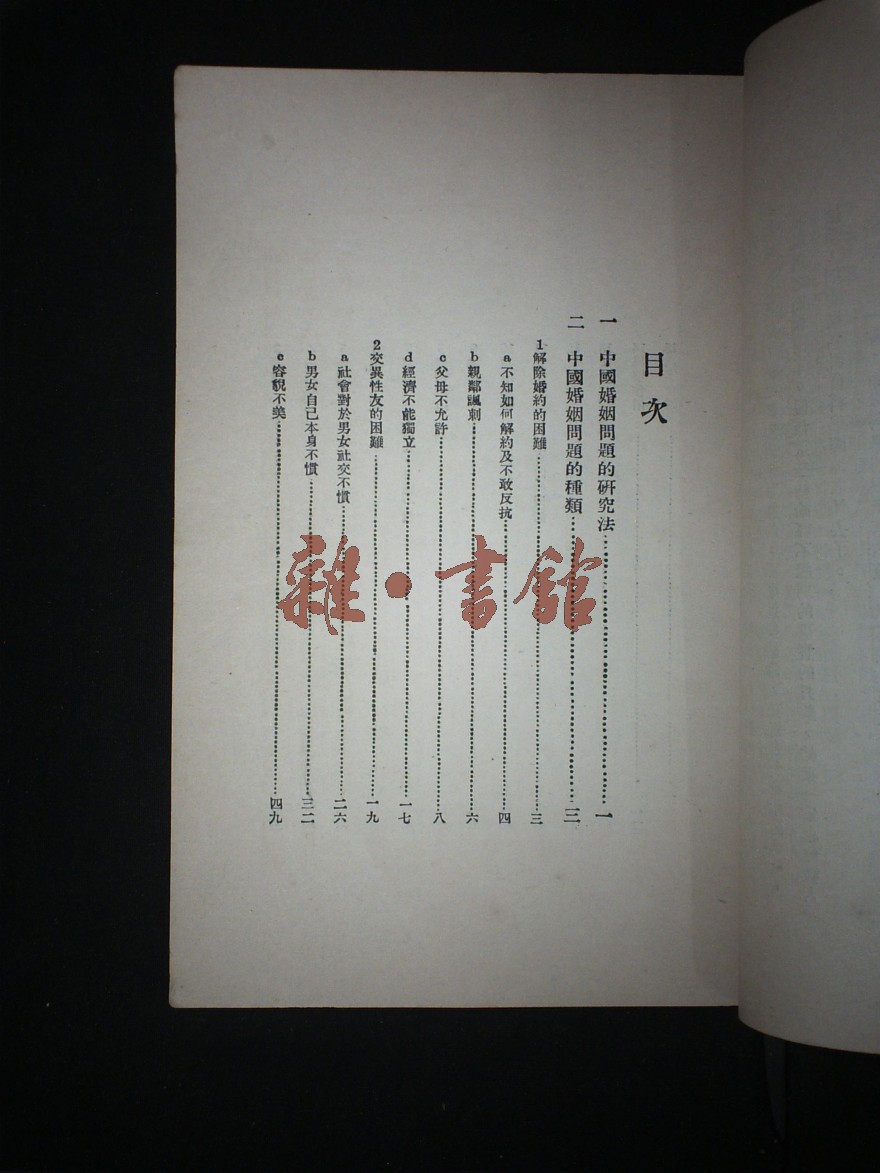 目次
一　中國婚姻問題的研究法………一
二　中國婚姻問題的種類………三
1解除婚約的困難………三
a 不知如何解約及不敢反抗………四
b 親鄰諷刺………六
c 父母不允許………八
d 經濟不能獨立………一七
2交異性友的困難………一九
a 社會對於男女社交不慣………二六
b 男女自己本身不慣………三二
c 容貌不美………四九
雜·書館